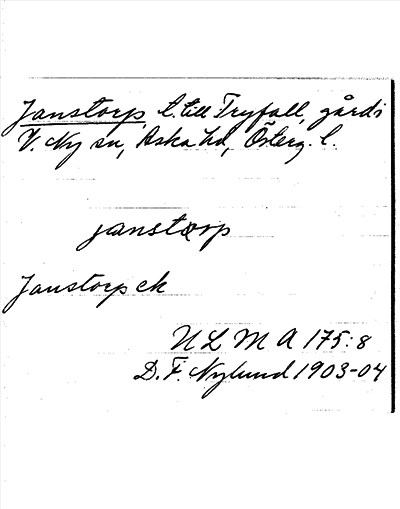 Janstorp, t. till Tryfall, gård i
V. Ny sn, Aska hd, Österg. l.
janstorp
Janstorp ek
N L M A 175:8
D. F. Nylund 1903-04